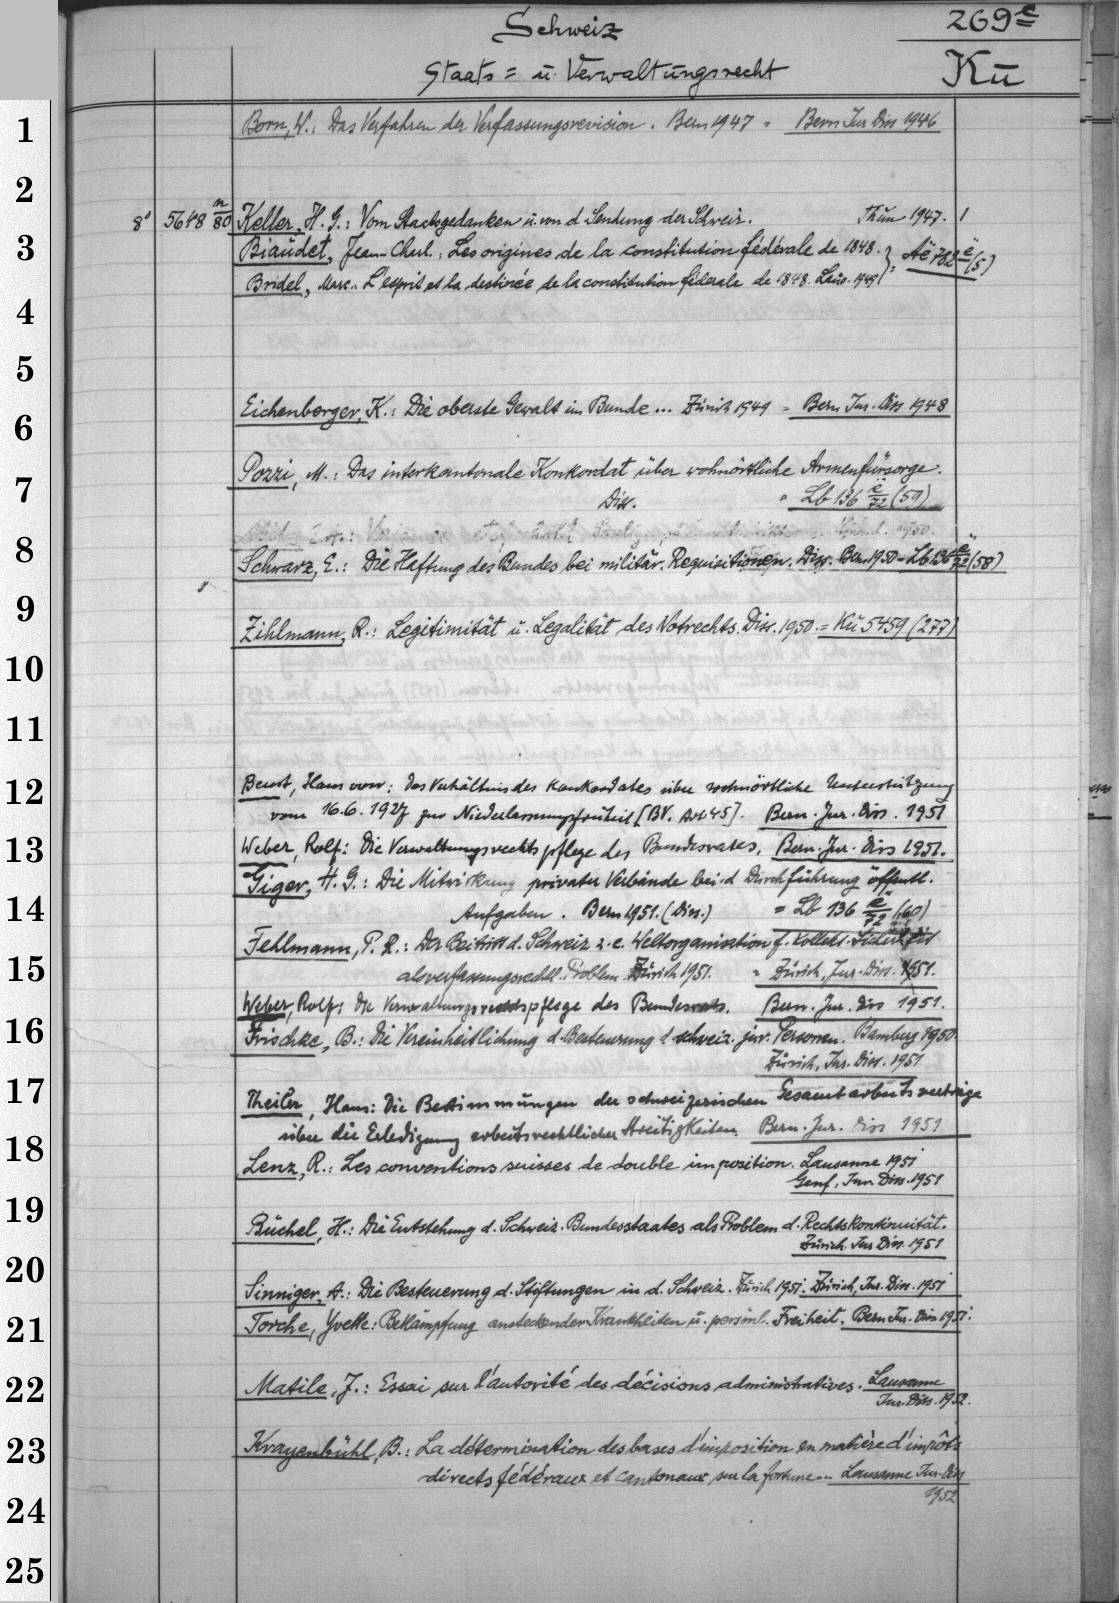 Schweiz
269e
Staats= u. Verwaltungsrecht
Ku
1
Born, W.: Das Verfahren der Verfassungsrevision. Bern 1947 = Bern Jur. Diss 1946
2
8° 5648 n/80 Keller, H. G.: Vom Staatsgedanken u. von d Sendung der Schweiz. Thun 1947. 1
3
Biaudet, Jean-Charl.: Les origines de la constitution fédérale de 1848. } = Aë 782 ë (5)
Bridel, Marc.: L'esprit et la destinée de la constitution fédérale de 1848. Laus. 1949
4
5
Eichenberger, K.: Die oberste Gewalt im Bunde ... Zürich 1949 = Bern Jur. Diss 1948
6
Pozzi, M.: Das interkantonale Konkordat über wohnörtliche Armenfürsorge.
7
Diss. = Lb 136 ë/72 (59)
8
Schwarz, E.: Die Haftung des Bundes bei militär. Requisitionen. Diss. Bern 1950 = Lb 136 ë/72 (58)
9
Zihlmann, R.: Legitimität u. Legalität des Notrechts. Diss. 1950. = Ku 5459 (277)
10
11
12
Beust, Hans von: Das Verhältnis des Konkordates über wohnörtliche Unterstützung
vom 16.6.1927 zur Niederlassungsfreiheit [BV. Art 45]. Bern. Jur. Diss. 1951
13
Weber, Rolf: Die Verwaltungsrechtspflege des Bundesrates. Bern. Jur. Diss 1951.
Giger, H. G.: Die Mitwirkung privater Verbände bei d Durchführung öffentl.
14
Aufgaben. Bern 1951. (Diss.) = Lb 136 ë/72 (60)
Fehlmann, P. R.: Der Beitritt d. Schweiz z. e. Weltorganisation f. kollekt.
15
als verfassungsrechtl. Problem. Zürich 1951. = Zürich, Jur. Diss. 1951.
Weber, Rolf: Die Verwaltungsrechtspflege des Bundesrats. Bern. Jur. Diss 1951.
16
Frischke, B.: Die Vereinheitlichung d. Besteuerung d schweiz. jur. Personen. Bamberg 1950.
Zürich, Jur. Diss. 1951
17
Theiler, Hans: Die Bestimmungen der schweizerischen Gesamtarbeitsverträge
über die Erledigung arbeitsrechtlicher Streitigkeiten. Bern. Jur. Diss 1951
18
Lenz, R.: Les conventions suisses de double imposition. Lausanne 1951
Genf, Jur. Diss. 1951
19
Büchel, H.: Die Entstehung d. Schweiz. Bundesstaates als Problem d. Rechtskontinuität.
Zürich. Jur Diss. 1951
20
Sinniger, A.: Die Besteuerung d. Stiftungen in d. Schweiz. Zürich 1951. Zürich, Jur. Diss. 1951
21
Torche, Yvette: Bekämpfung ansteckender Krankheiten u. persönl. Freiheit. Bern Jur. Diss 1951.
22
Matile, J.: Essai sur l'autorité des décisions administratives. Lausanne
Jur. Diss. 1952.
23
Krayenbühl, B.: La détermination des bases d'imposition en matière d'impôts
directs fédéraux et cantonaux sur la fortune... Lausanne Jur. Diss
24
1952
25